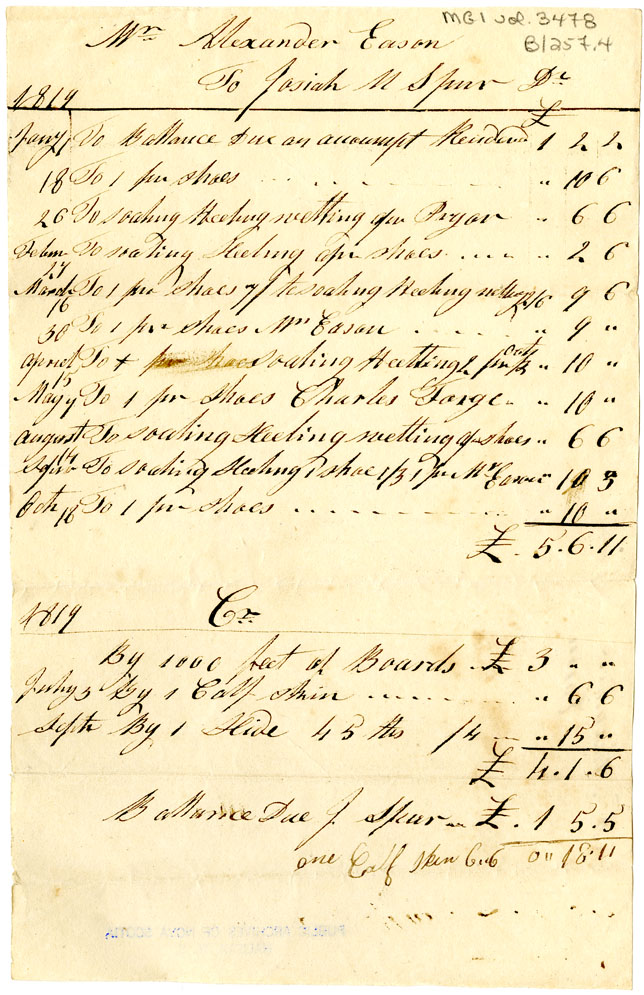 MG1 vol. 3478
B/257.4
Mr Alexander Eason
To Josiah M Spur Dr
1819 £
Jany 1 To Ballance Due on accoumpt Rendered 1 2 2
18 To 1 pr shoes " 10 6
26 To soaling Heeling welting 1 pr Pryor " 6 6
Febru 27 To soaling Heeling 1 pr shoes " 2 6
March 16 To 1 pr shoes 7/ to soaling Heeling 2/6 9 6
30 To 1 pr shoes Mrs Eason " 9 "
april 15 To soaling Heelling " 10 "
May 7 To 1 pr shoes Charles Targe " 10 "
august 14 To soaling Heeling welting 1 pr shoes " 6 6
To soaling Heeling 1 shoe 1/3 1 pr Mrs Eason " 10 3
Octb 18 To 1 pr shoes " 10 "
£ 5.6.11
1819 Cr
By 1000 feet of Boards £ 3 " "
July 3 By 1 Calf skin " 6 6
Septb By 1 Hide 45 lbs /4 " 15 "
£ 4.1.6
Ballance Due J Spur £ . 1 5.5
one Calf skin 6..6 0 " 18.11
PUBLIC ARCHIVES OF NOVA SCOTIA